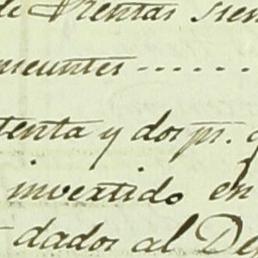 de Rentas sien
meuntes ------
tenta y dos pr. q
invertido en
dados al De